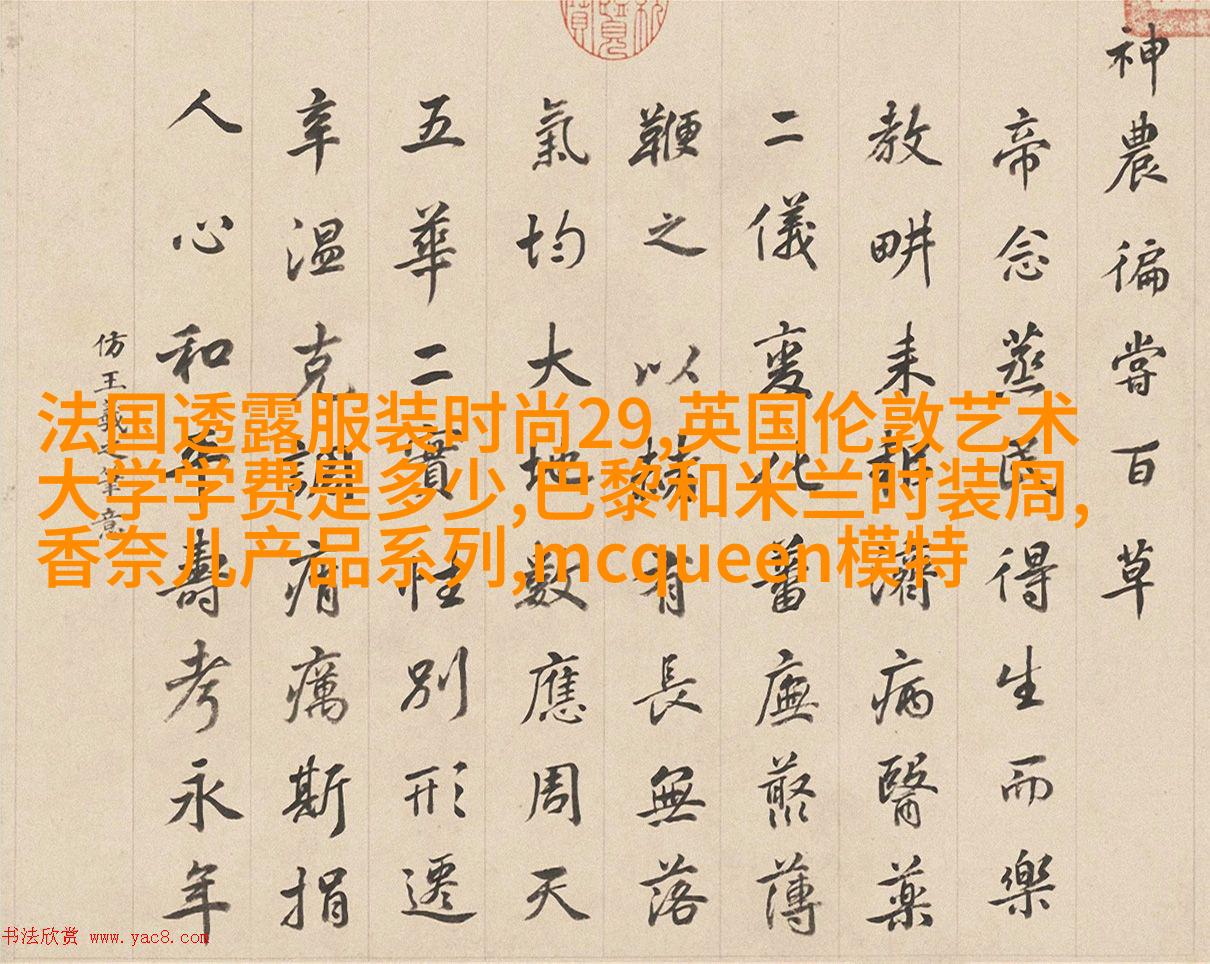 神農徧嘗百草
帝念蒸民得生而樂
教畊耒耜濟病醫藥
二儀變化蕃廡叢薄
鞭之以赭有長無落
氣均大地數應周天
五華二實性別形遷
辛溫克調痟癘斯捐
人心和平壽考永年
仿王羲之筆意
法国透露服装时尚29,英国伦敦艺术
大学学费是多少,巴黎和米兰时装周,
香奈儿产品系列,mcqueen模特
书法欣赏 www.yac8.com